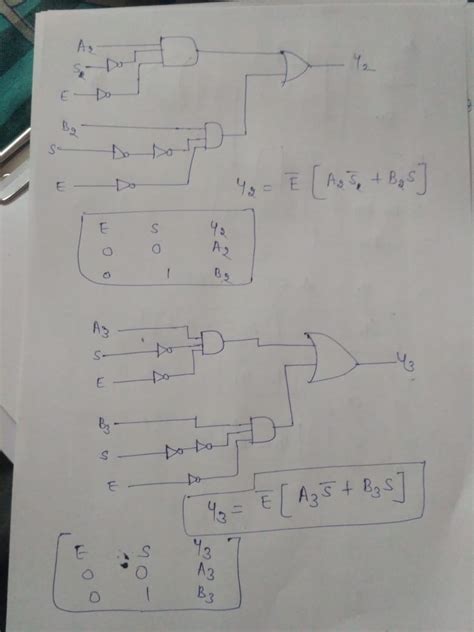 A2
S
Y2
E
B2
S
E
Y2 = E̅ [A2 S̅ + B2 S]
E S Y2
0 0 A2
0 1 B2
A3
S
Y3
E
B3
S
E
Y3 = E̅ [A3 S̅ + B3 S]
E S Y3
0 0 A3
0 1 B3